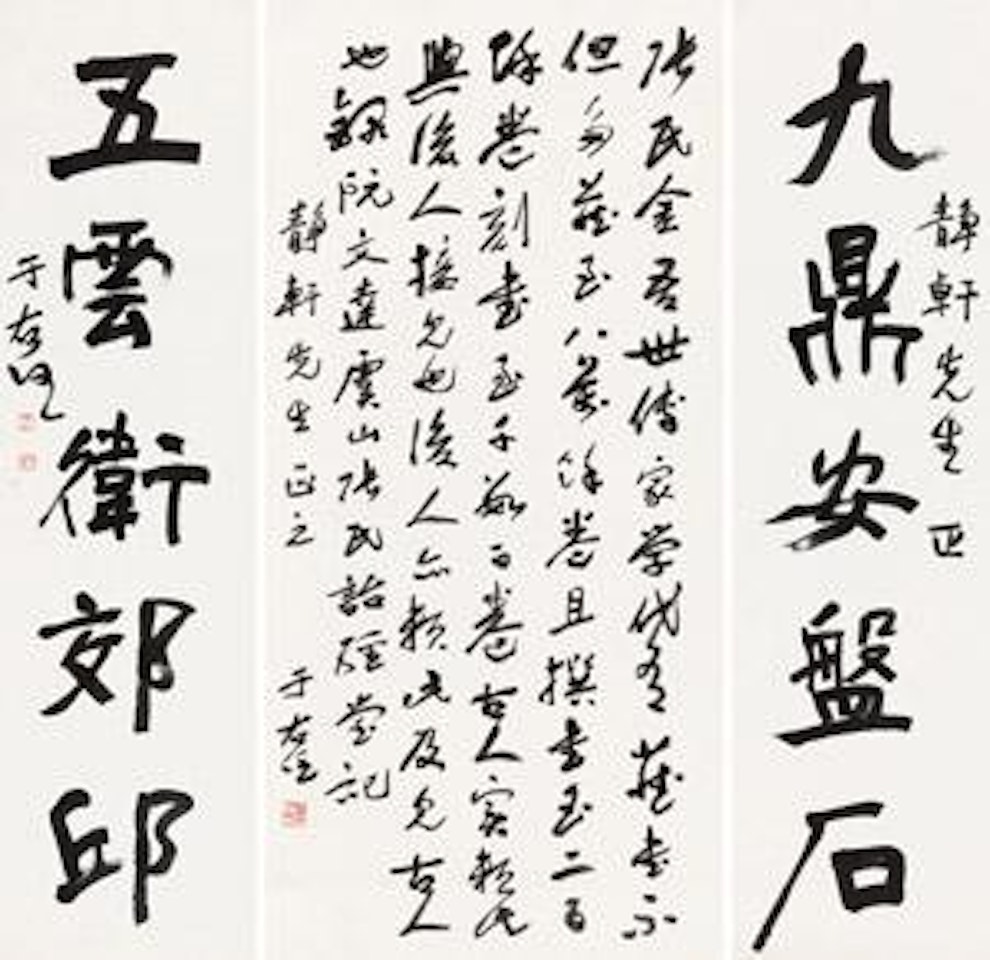 靜軒先生 正
九鼎安盤石
張氏金吾世傳家学代有藏書不
但多藏至八萬餘卷且撰書至二百
餘卷刻書至千數百卷古人實賴此
與後人接見也後人亦賴此及見古人
也錄阮文達虞山張氏詒經堂記
靜軒先生正之 于右任
五雲衛郊邱
于右任